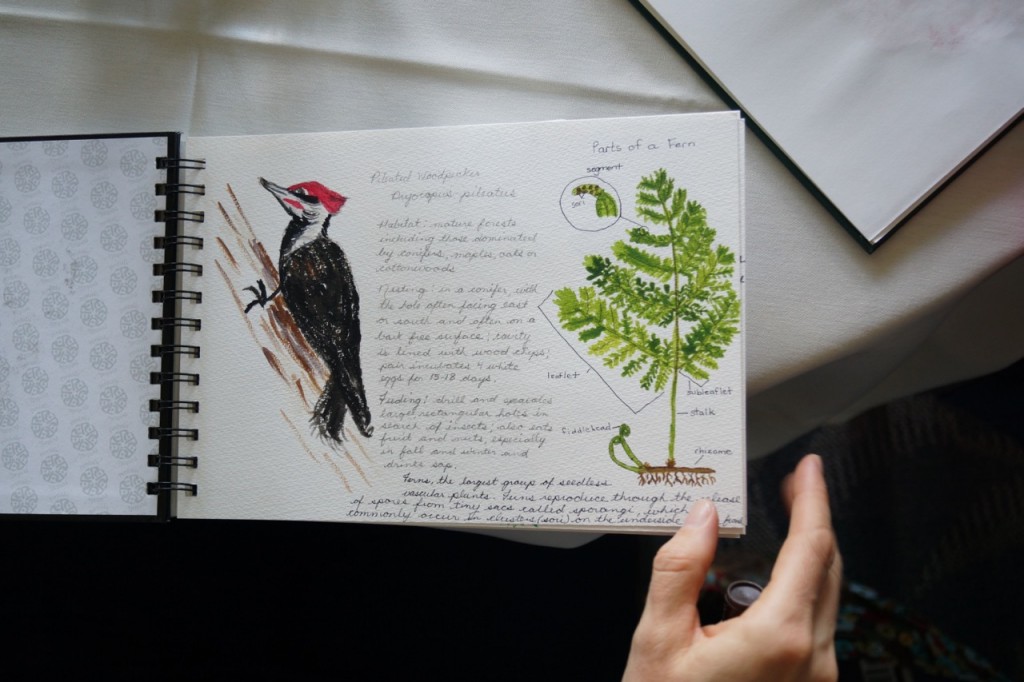 Pileated Woodpecker
Dryocopus pileatus
Habitat: mature forests
including those dominated
by conifers, maples, oaks or
cottonwoods
Nesting: in a conifer, with
the hole often facing east
or south and often on a
bark free surface; cavity
is lined with wood chips;
pair incubates 4 white
eggs for 15-18 days.
Feeding: drill and excavates
large, rectangular holes in
search of insects; also eats
fruit and nuts, especially
in fall and winter and
drinks sap.
Parts of a Fern
segment
sori
leaflet
subleaflet
stalk
fiddlehead
rhizome
Ferns, the largest group of seedless
vascular plants. Ferns reproduce through the release
of spores from tiny sacs called sporangi, which
commonly occur in clusters (sori) on the underside